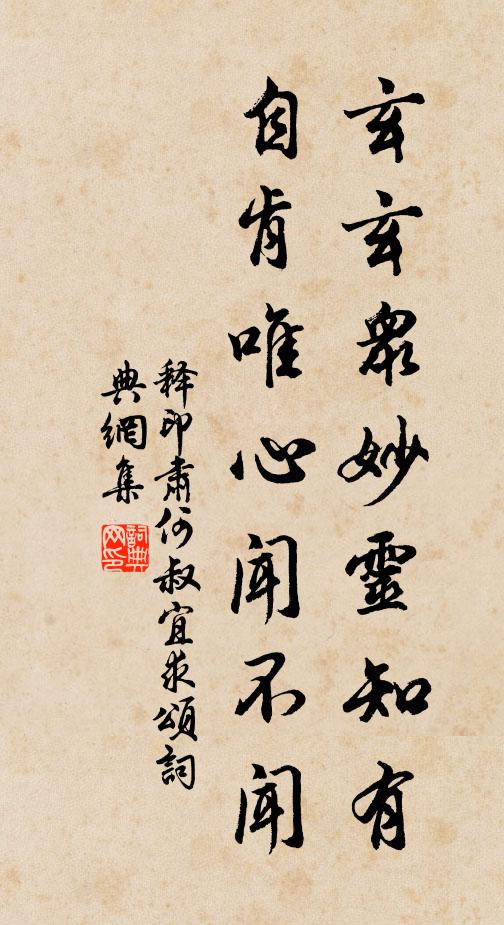 玄玄衆妙靈知有
自肯唯心聞不聞
釋印肅何叔宜求頌詞
典網集
詞典
网印